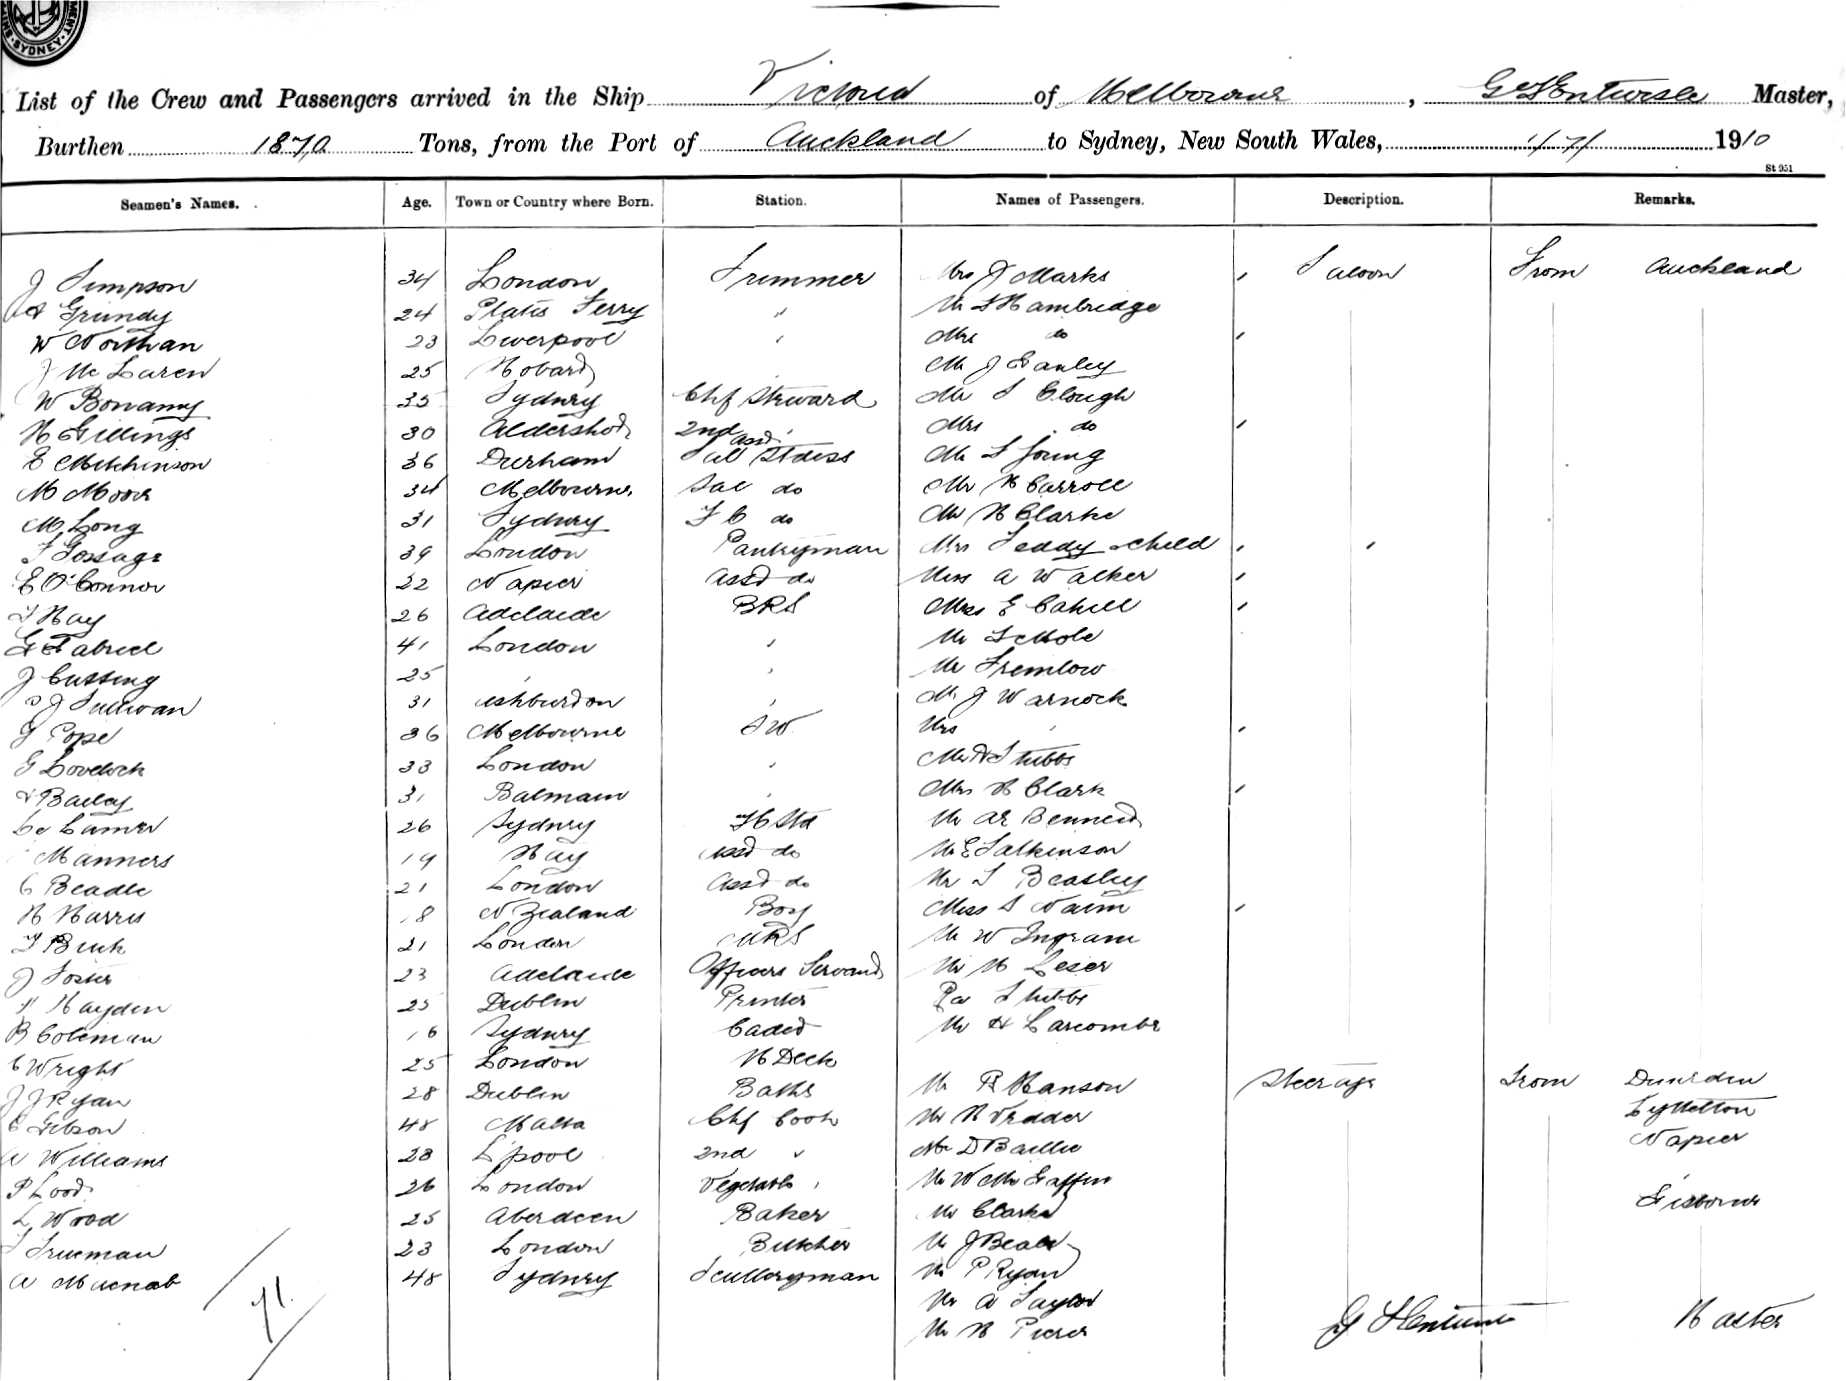 SYDNEY
List of the Crew and Passengers arrived in the Ship Victoria of Melbourne, Master,
Burthen 1870 Tons, from the Port of Auckland to Sydney, New South Wales, 1/7/ 1910
St 951
Seamen's Names. Age. Town or Country where Born. Station. Names of Passengers. Description. Remarks.
J Simpson 34 London Trimmer Mrs J Marks Saloon From Auckland
Grundy 24 Platts Ferry " Mr Hambridge
W Northan 23 Liverpool " Mrs do
J McLaren 25 Hobart Mr J Ganley
W Bonamy 35 Sydney Chf Steward Mr S Clough
H Gillings 30 Aldershot 2nd Mrs do
E Mitchinson 36 Durham Stdess Mr S Young
M Moore 34 Melbourne Sal do Mr H Carroll
M Long 31 Sydney do Mr H Clarke
F Gossage 39 London Pantryman Mrs Teddy child
E O'Connor 22 Napier Asst do Miss A Walker
T Hay 26 Adelaide BRS Mrs E Cahill
G Gabriel 41 London " Mr
J Cussing 25 " " Mr Tremlow
J Sullivan 31 Ashburton " Mr J Warnock
G Pope 36 Melbourne SW Mrs "
G Lovelock 33 London " Mr Stubbs
Bailey 31 Balmain " Mrs H Clark
26 Sydney Mr Bennett
Manners 19 Hay Asst do Mr E Salkinson
C Beadle 21 London Asst do Mr S Beasley
H Harris 18 N Zealand Boy Miss S Nairn
21 London MRS Mr W Ingram
J Foster 23 Adelaide Officers Servant Mr H Leser
Hayden 25 Dublin Printer Stubbs
B Coleman 16 Sydney Cadet Mr H Larcombe
C Wright 25 London H Deck
J J Ryan 28 Dublin Baths Mr R Hanson Steerage From Dunedin
C Gibson 48 Malta Chf Cook Mr H Lyttelton
A Williams 28 L'pool 2nd " Mr D Baillie Napier
26 London Vegetable " Mr W McGaffin
L Wood 25 Aberdeen Baker Mr Clarke Gisborne
Trueman 23 London Butcher Mr J Beale
A Macnab 48 Sydney Sculleryman Mr P Ryan
71 Mr A Taylor
Mr H Pierce Master